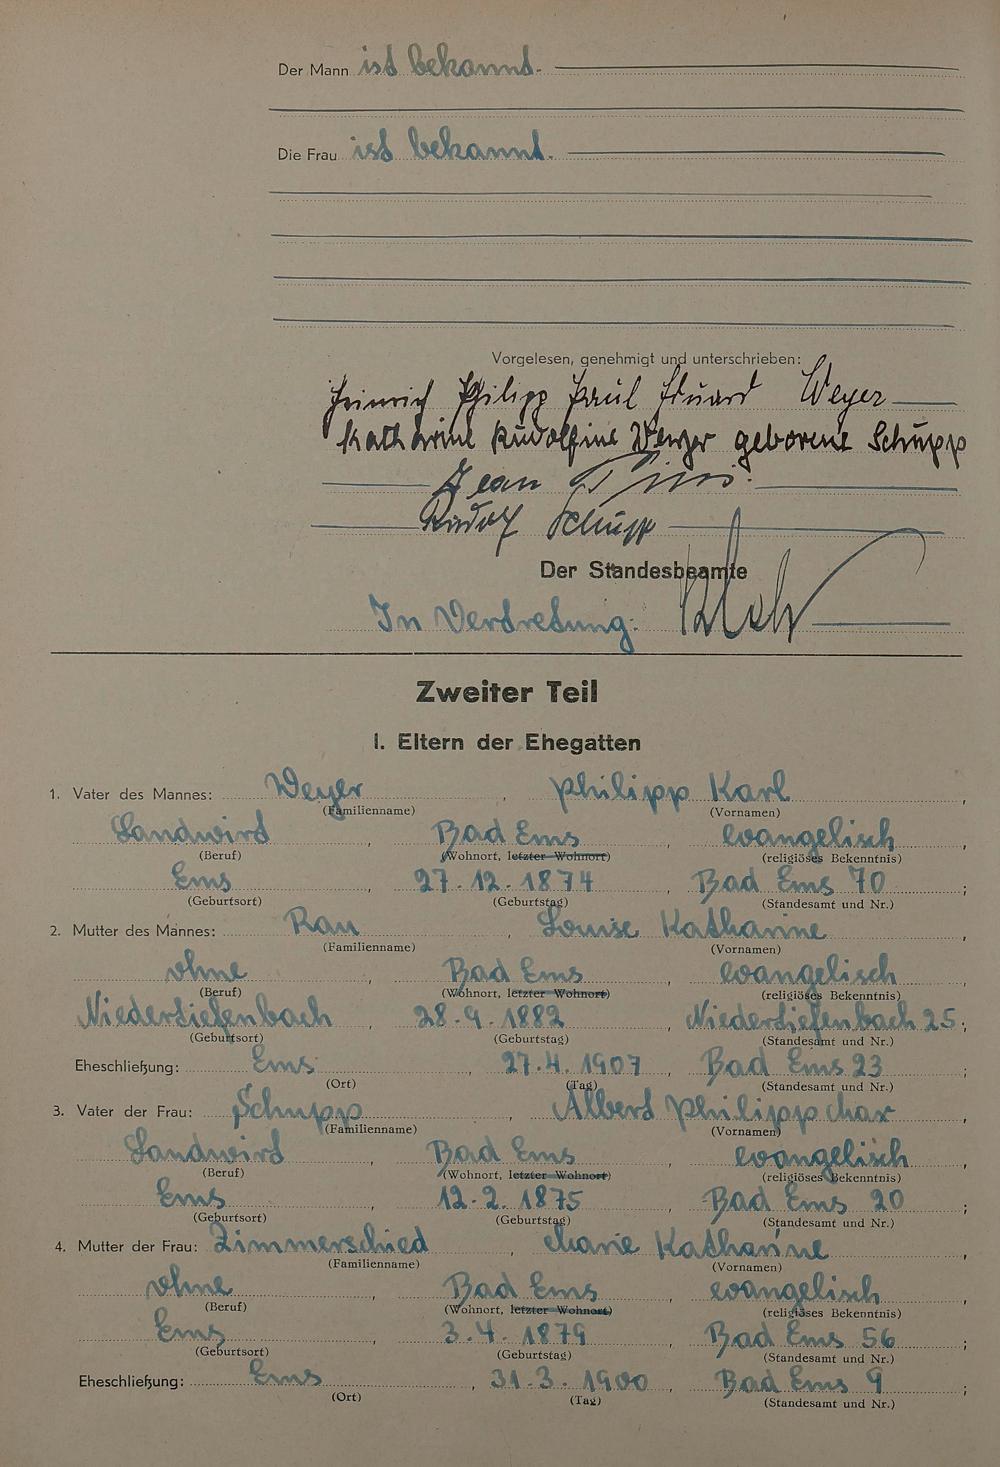 Der Mann ist bekannt.
Die Frau ist bekannt.
Vorgelesen, genehmigt und unterschrieben:
Heinrich Philipp Paul Eduard Weyer
Katharine Rudolfine Weyer geborene Schupp
Jean
Rudolf Schupp
Der Standesbeamte
In Vertretung:
Zweiter Teil
I. Eltern der Ehegatten
1. Vater des Mannes: Weyer, Philipp Karl,
(Familienname) (Vornamen)
Landwirt, Bad Ems, evangelisch,
(Beruf) (Wohnort, letzter Wohnort) (religiöses Bekenntnis)
Ems, 27.12.1874, Bad Ems 70;
(Geburtsort) (Geburtstag) (Standesamt und Nr.)
2. Mutter des Mannes: Rau, Louise Katharine,
(Familienname) (Vornamen)
ohne, Bad Ems, evangelisch,
(Beruf) (Wohnort, letzter Wohnort) (religiöses Bekenntnis)
Niedertiefenbach, 28.9.1882, Niedertiefenbach 25;
(Geburtsort) (Geburtstag) (Standesamt und Nr.)
Eheschließung: Ems, 27.4.1907, Bad Ems 23;
(Ort) (Tag) (Standesamt und Nr.)
3. Vater der Frau: Schupp, Albert Philipp Max,
(Familienname) (Vornamen)
Landwirt, Bad Ems, evangelisch,
(Beruf) (Wohnort, letzter Wohnort) (religiöses Bekenntnis)
Ems, 12.2.1875, Bad Ems 20;
(Geburtsort) (Geburtstag) (Standesamt und Nr.)
4. Mutter der Frau: Zimmerschied, Marie Katharine,
(Familienname) (Vornamen)
ohne, Bad Ems, evangelisch,
(Beruf) (Wohnort, letzter Wohnort) (religiöses Bekenntnis)
Ems, 3.4.1879, Bad Ems 56;
(Geburtsort) (Geburtstag) (Standesamt und Nr.)
Eheschließung: Ems, 31.3.1900, Bad Ems 9;
(Ort) (Tag) (Standesamt und Nr.)